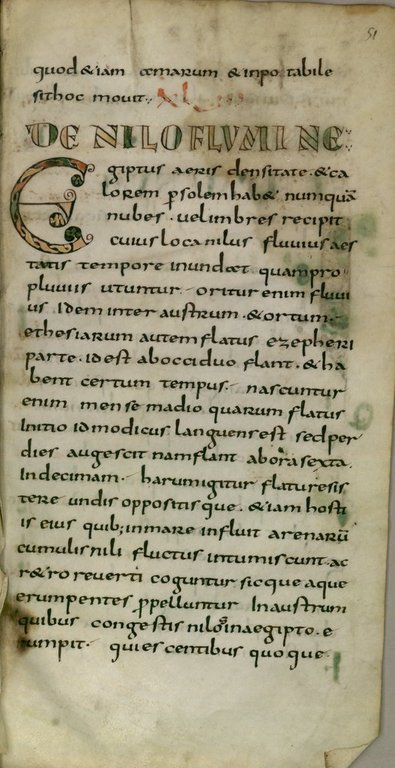 51
quod &iam amarum & inpo tabile
sithoc movit
DE NILO FLUMINE
Egiptus aeris densitate · & ca
lorem p solem hab& numquā
nubes · vel imbres recipit
cuius loca nilus fluvius aes
tatis tempore inundat quam pro
pluviis utuntur · oritur enim fluvi
us idem inter austrum · & ortum ·
ethesiarum autem flatus ezepheri
parte · id est ab occiduo flant · & ha
bent certum tempus · nascuntur
enim mense madio quarum flatus
initio id modicus languens est sed per
dies augescit nam flant ab ora sexta
in decimam · harum igitur flatu resis
tere undis oppositis que · & iam hosti
is eius quib; in mare influit arenarū
cumulis nili fluctus intumiscunt ac
r&ro reverti coguntur sicque aque
erumpentes ppelluntur in austrum
quibus congestis nilus in aegipto · e
rumpit · quiescentibus quoque